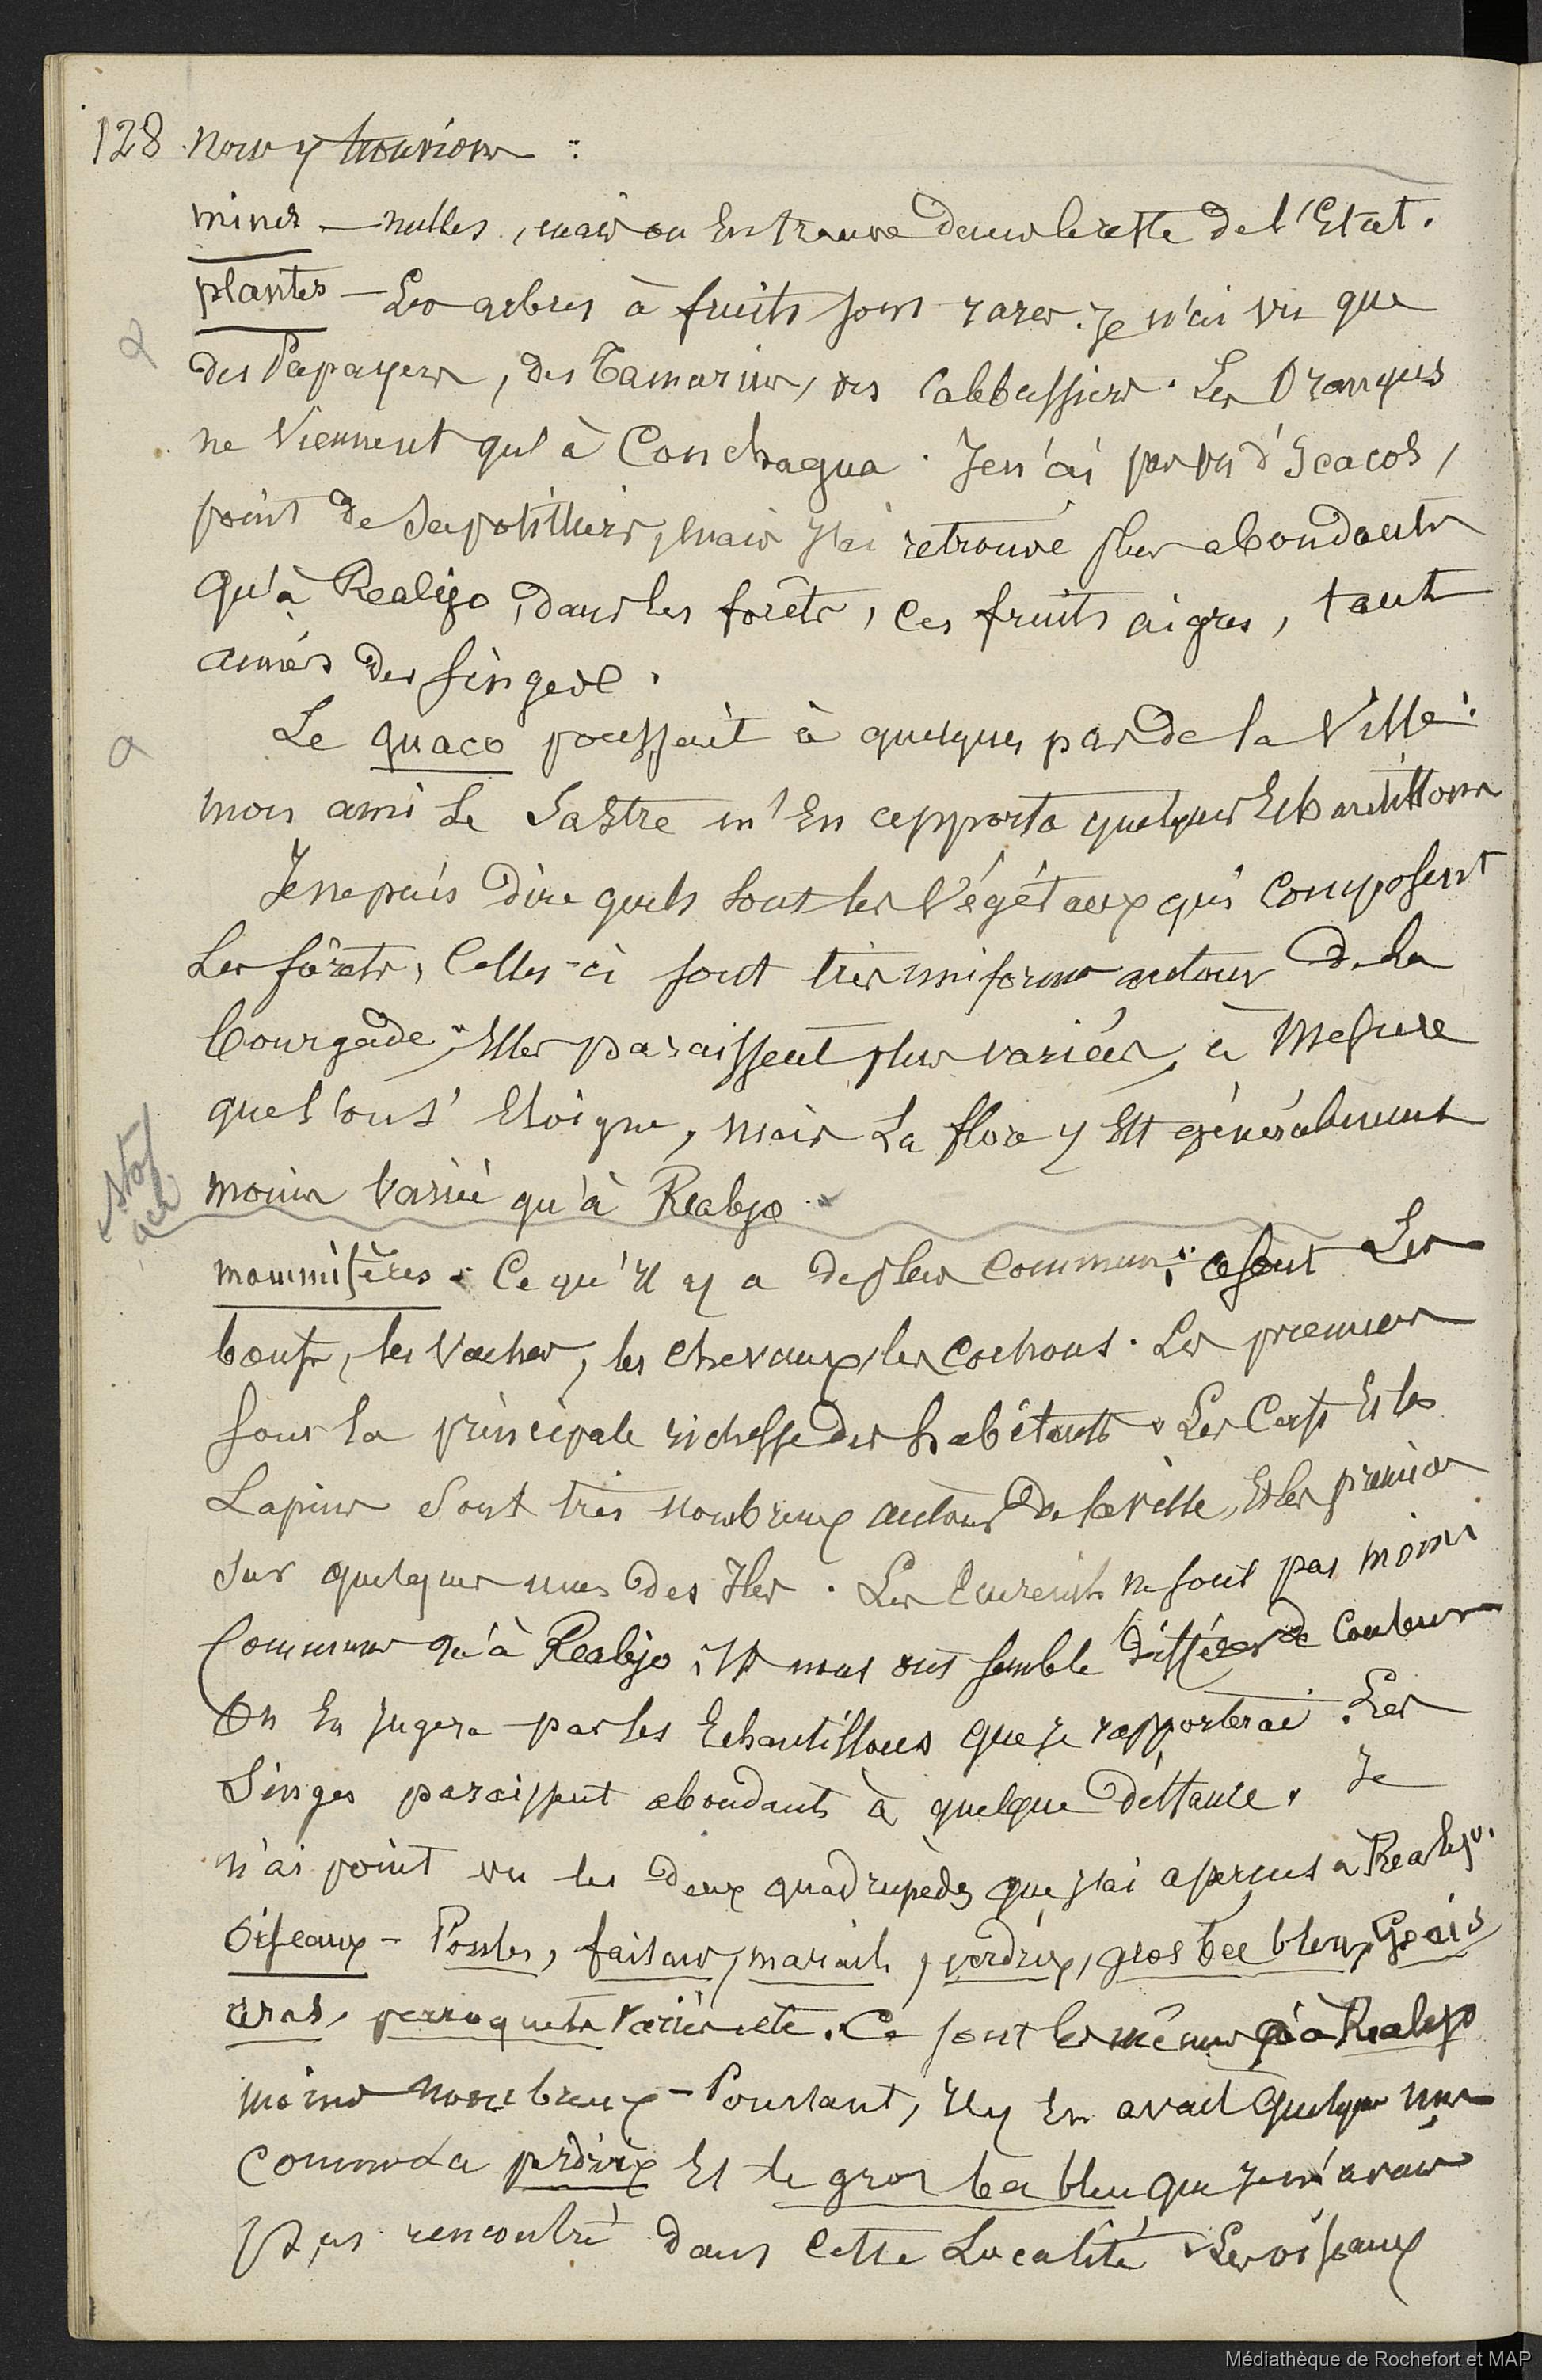 128 nous y trouvions :
mines — nulles, mais on en trouve dans le reste de l'Etat.
plantes — Les arbres à fruits sont rares. Je n'ai vu que
des Papayers, des Tamarins, des Calebassiers. Les Oranges
ne viennent qu'à Conchagua. Je n'ai pas vu d'Icacos,
point de Sapotilliers, mais j'ai retrouvé plus abondants
qu'à Realejo, dans les forêts, ces fruits aigres, tant
aimés des singes.
a
Le guaco poussait à quelques pas de la Ville.
mon ami Le Sastre m'en apporta quelques Echantillons
Je ne puis dire quels sont les Végétaux qui composent
Les forêts, Celles-ci sont très uniformes autour de la
bourgade; Elles paraissent plus variées, à mesure
que l'on s'éloigne, mais La flore y est généralement
moins variée qu'à Realejo.
mammifères. Ce qu'il y a de plus commun, ce sont Les
boeufs, les Vaches, les chevaux, les cochons. Les premiers
sont la principale richesse des habitants. Les Cerfs et les
Lapins sont très nombreux autour de la ville, et les premiers
sur quelques unes des Iles. Les Ecureuils ne sont pas moins
Communs qu'à Realejo, ils nous ont semblé différer de couleur
On en jugera par les Echantillons que je rapporterai. Les
Singes paraissent abondants à quelque distance. Je
n'ai point vu les deux quadrupèdes que j'ai aperçus à Realejo.
Oiseaux - Poules, faisans, mariails, perdrix, gros bec bleu, Geais
aras, perroquets variés etc. Ce sont les mêmes qu'à Realejo
moins nombreux - Pourtant, il y en avait quelques uns
comme La perdrix et le gros bec bleu que je n'avais
pas rencontré dans cette Localité. Les oiseaux
Médiathèque de Rochefort et MAP